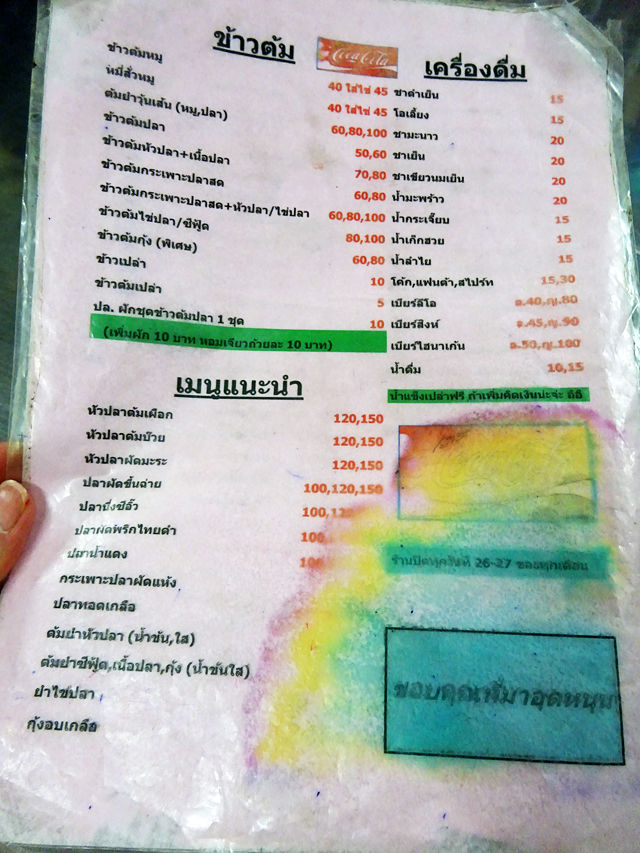 ข้าวต้ม
Coca-Cola
ข้าวต้มหมู 40 ใส่ไข่ 45
หมี่สั่วหมู 40 ใส่ไข่ 45
ต้มยำวุ้นเส้น (หมู,ปลา) 60,80,100
ข้าวต้มปลา 50,60
ข้าวต้มหัวปลา+เนื้อปลา 70,80
ข้าวต้มกระเพาะปลาสด 60,80
ข้าวต้มกระเพาะปลาสด+หัวปลา/ไข่ปลา 60,80,100
ข้าวต้มไข่ปลา/ซีฟู้ด 80,100
ข้าวต้มกุ้ง (พิเศษ) 60,80
ข้าวเปล่า 10
ข้าวต้มเปล่า 5
ปล. ผักชุดข้าวต้มปลา 1 ชุด 10
(เพิ่มผัก 10 บาท หอมเจียวถ้วยละ 10 บาท)
เมนูแนะนำ
หัวปลาต้มเผือก 120,150
หัวปลาต้มบ๊วย 120,150
หัวปลาผัดมะระ 120,150
ปลาผัดขึ้นฉ่าย 100,120,150
ปลานึ่งซีอิ๊ว 100,12
ปลาผัดพริกไทยดำ 100
ปลาน้ำแดง 100
กระเพาะปลาผัดแห้ง
ปลาทอดเกลือ
ต้มยำหัวปลา (น้ำข้น,ใส)
ต้มยำซีฟู้ด,เนื้อปลา,กุ้ง (น้ำข้นใส)
ยำไข่ปลา
กุ้งอบเกลือ
เครื่องดื่ม
ชาดำเย็น 15
โอเลี้ยง 15
ชามะนาว 20
ชาเย็น 20
ชาเขียวนมเย็น 20
น้ำมะพร้าว 20
น้ำกระเจี๊ยบ 15
น้ำเก๊กฮวย 15
น้ำลำไย 15
โค้ก,แฟนต้า,สไปร์ท 15,30
เบียร์ลีโอ ล.40,ญ.80
เบียร์สิงห์ ล.45,ญ.90
เบียร์ไฮนาเก้น ล.50,ญ.100
น้ำดื่ม 10,15
น้ำแข็งเปล่าฟรี ถ้าเพิ่มคิดเงินนะจ๊ะ อิอิ
ร้านปิดทุกวันที่ 26-27 ของทุกเดือน
ขอบคุณที่มาอุดหนุน